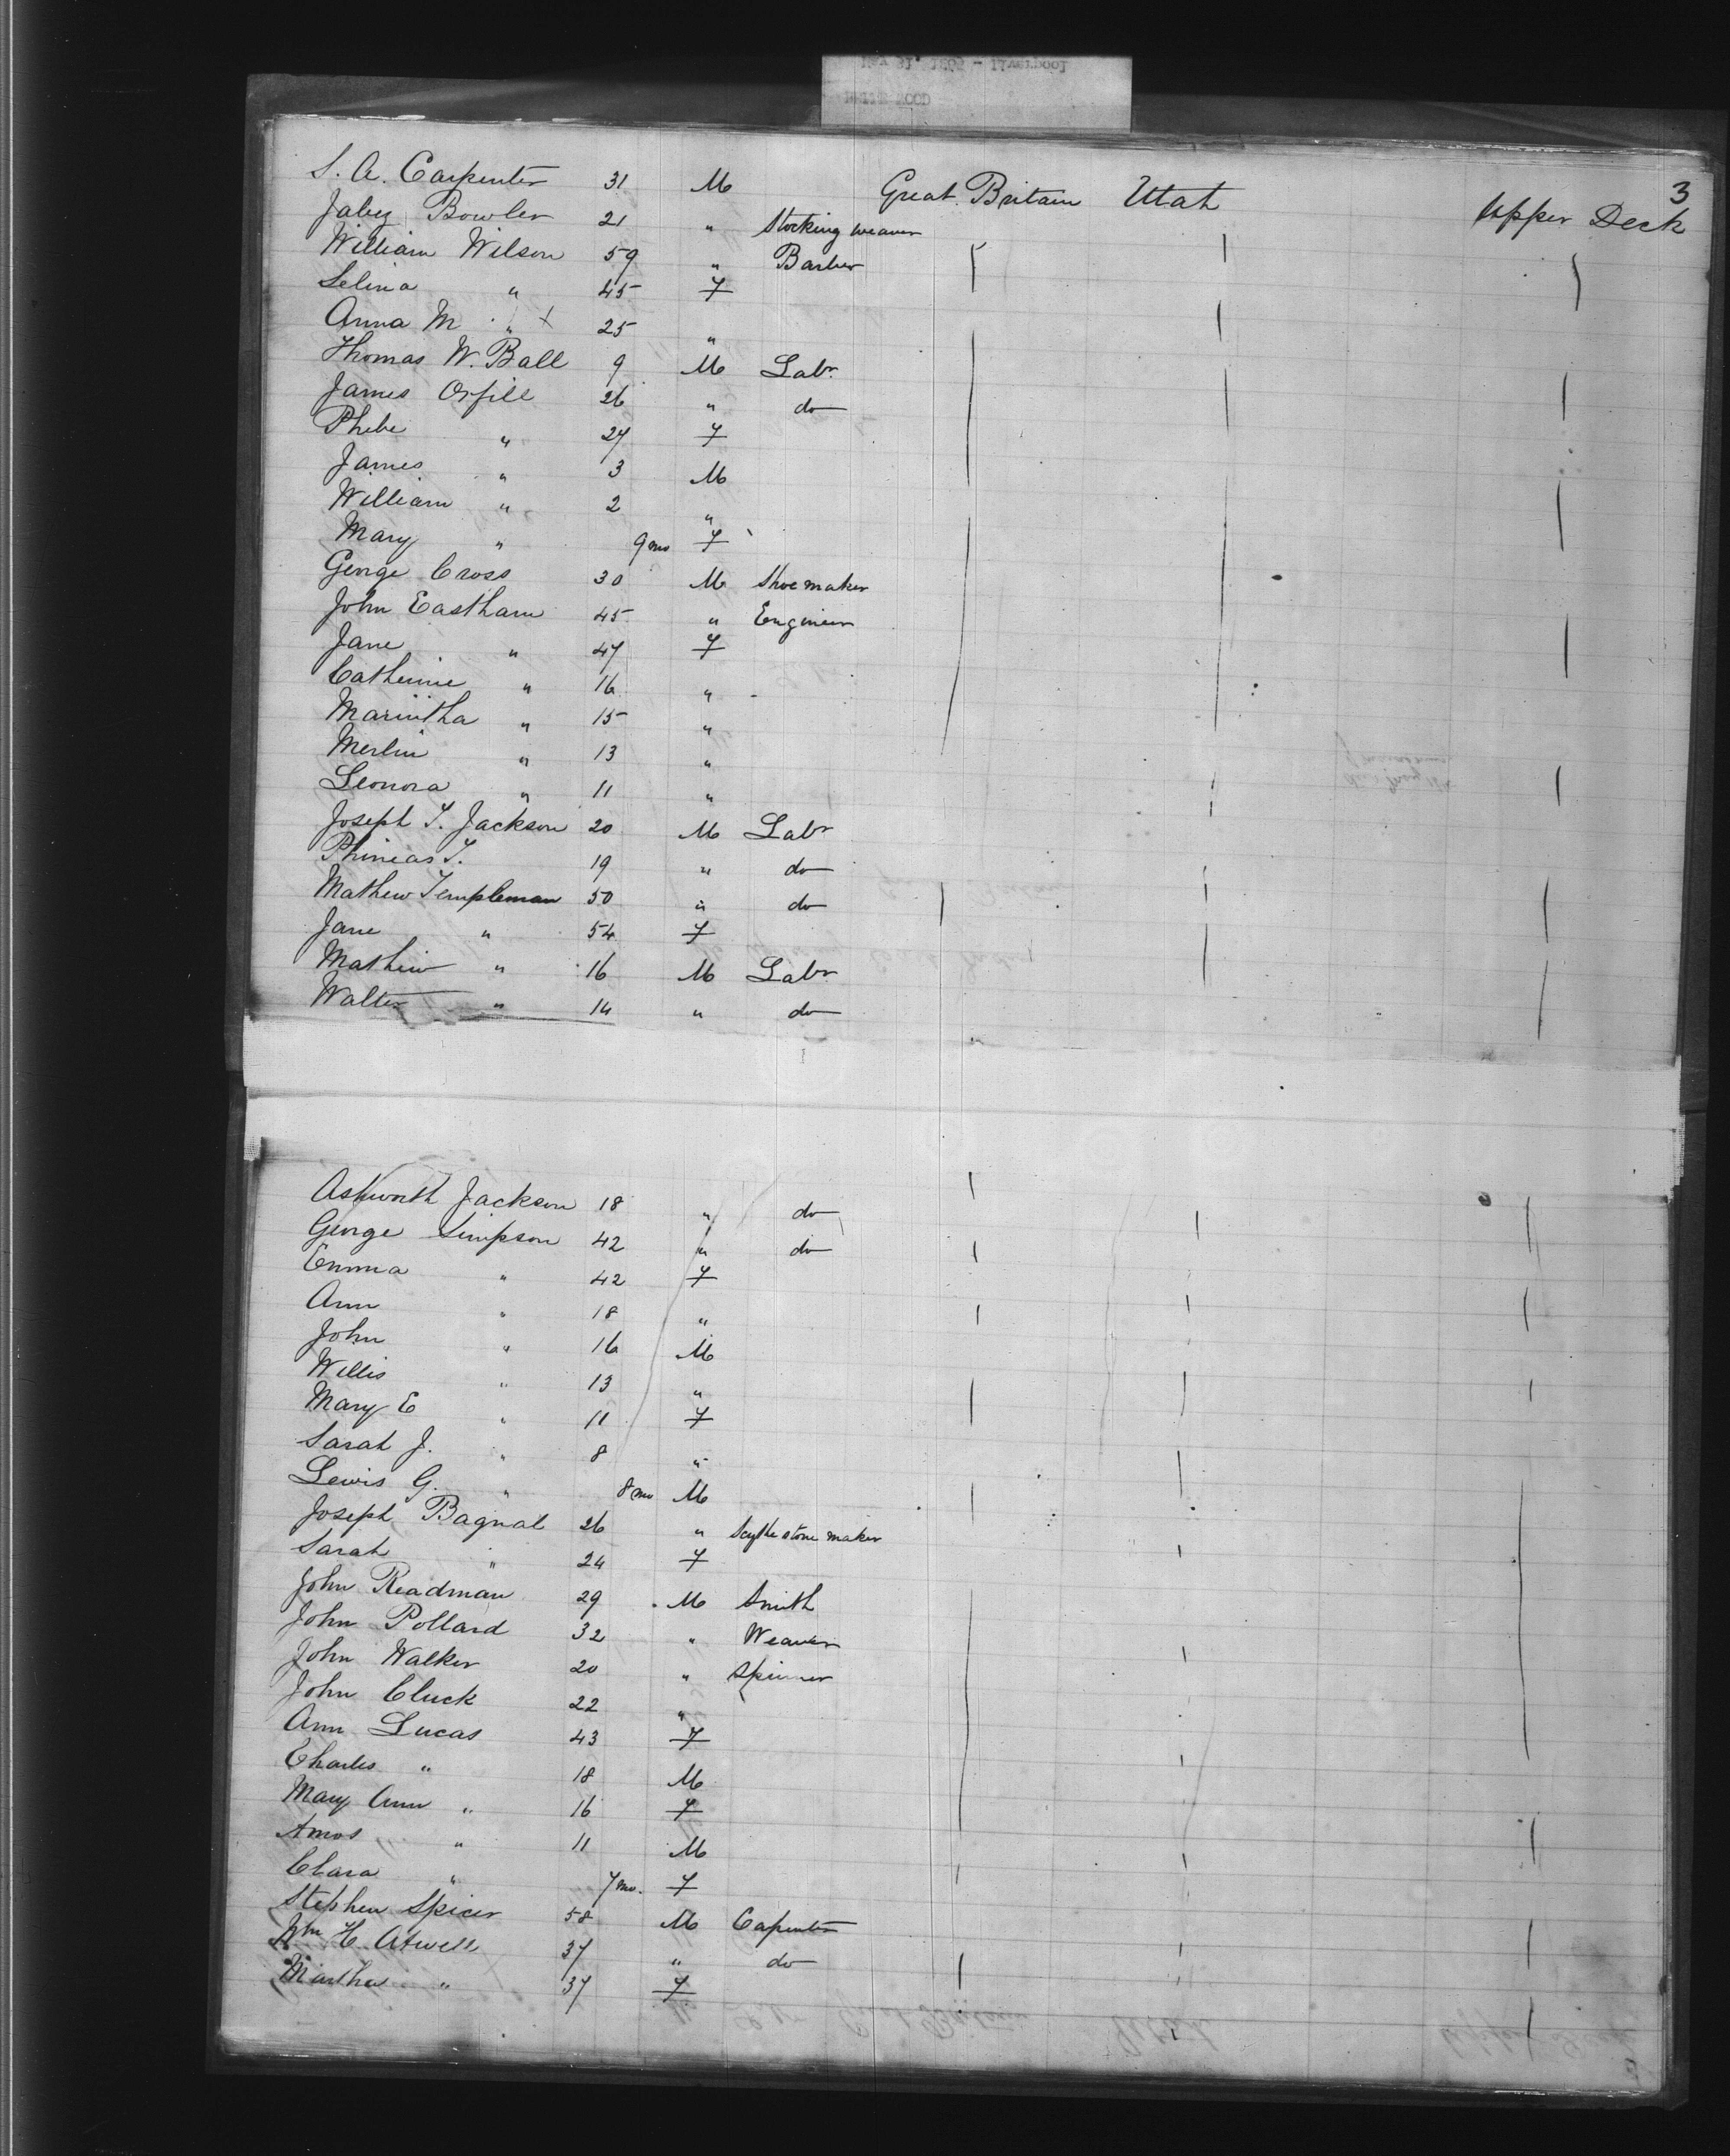 3
S. A. Carpenter 31 M Great Britain Utah Upper Deck
Jabez Bowler 21 " Stocking weaver
William Wilson 59 " Barber
Selina " 45 F
Anna M " X 25 "
Thomas W. Ball 9 M Labr
James Orfill 26 " do
Phebe " 27 F
James " 3 M
William " 2 "
Mary " 9 mo F
George Cross 30 M Shoemaker
John Eastham 45 " Engineer
Jane " 47 F
Catherine " 16 "
Marintha " 15 "
Merlin " 13 "
Leonora " 11 "
Joseph T. Jackson 20 M Labr
Phineas T. 19 " do
Mathew Templeman 50 " do
Jane " 54 F
Mathew " 16 M Labr
Walter " 14 " do
Ashworth Jackson 18 " do
George Simpson 42 " do
Emma " 42 F
Ann " 18 "
John " 16 M
Willis " 13 "
Mary E " 11 F
Sarah J. " 8 "
Lewis G. " 8 mo M
Joseph Bagnal 26 " Scythe stone maker
Sarah " 24 F
John Readman 29 M Smith
John Pollard 32 " Weaver
John Walker 20 " Spinner
John Cluck 22 "
Ann Lucas 43 F
Charles " 18 M
Mary Ann " 16 F
Amos " 11 M
Clara " 7 mo. F
Stephen Spicer 58 M Capenter
Wm H. Atwell 37 " do
Martha " 37 F